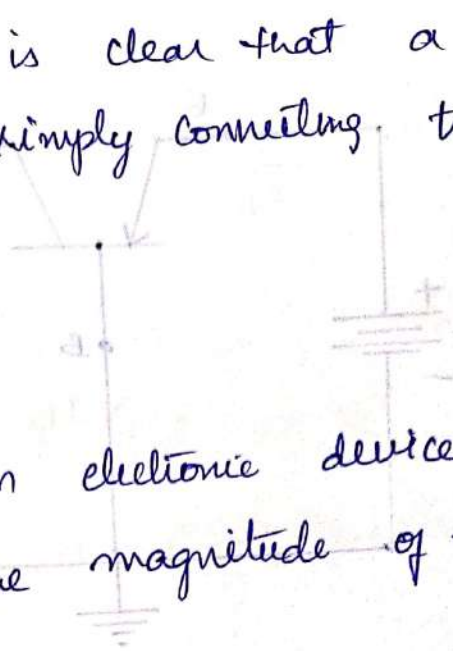 is clear that a
simply connecting t
n electronic device
e magnitude of